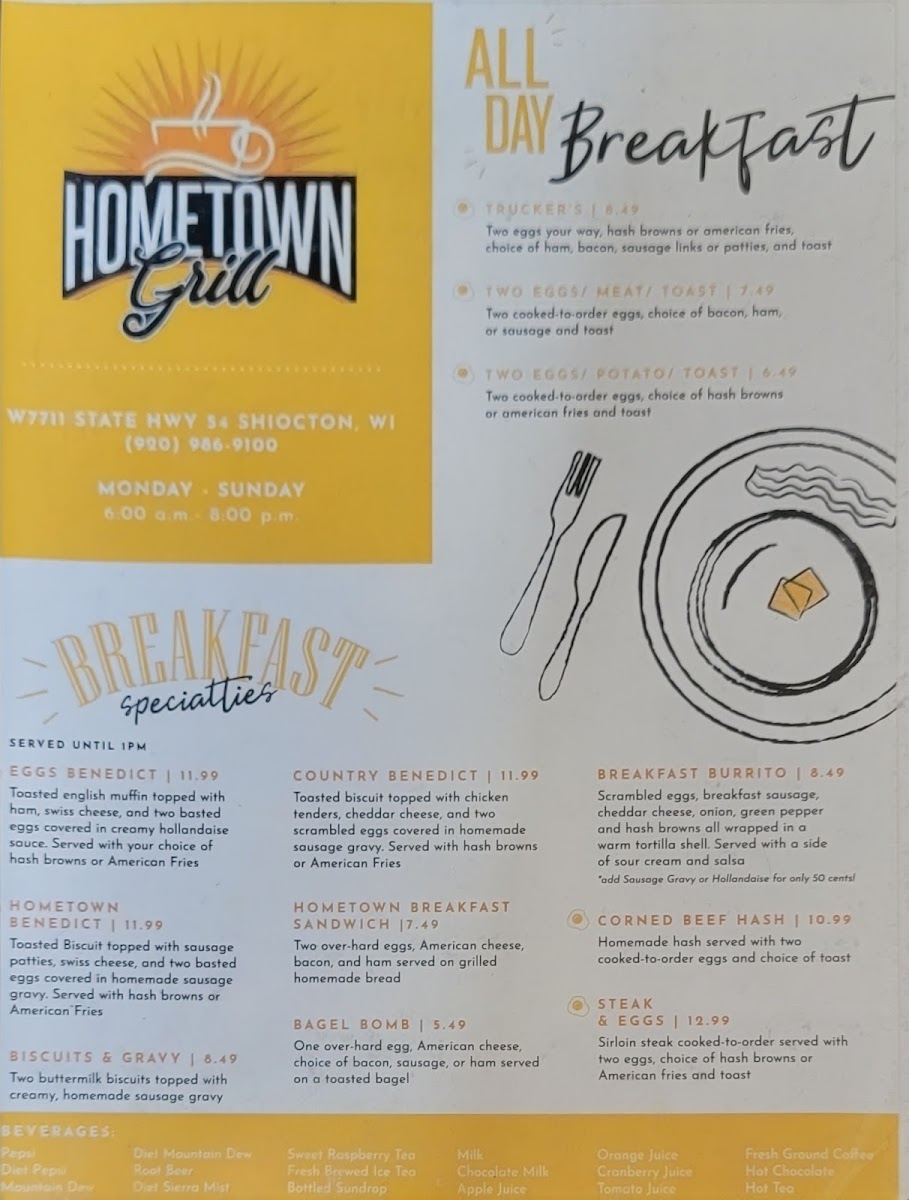 HOMETOWN
Grill
W7711 STATE HWY 54 SHIOCTON, WI
(920) 986-9100
MONDAY - SUNDAY
6:00 a.m.- 8:00 p.m.
ALL
DAY
Breakfast
TRUCKER'S | 8.49
Two eggs your way, hash browns or american fries,
choice of ham, bacon, sausage links or patties, and toast
TWO EGGS/ MEAT/ TOAST | 7.49
Two cooked-to-order eggs, choice of bacon, ham,
or sausage and toast
TWO EGGS/ POTATO/ TOAST | 6.49
Two cooked-to-order eggs, choice of hash browns
or american fries and toast
BREAKFAST
specialties
SERVED UNTIL 1PM
EGGS BENEDICT | 11.99
Toasted english muffin topped with
ham, swiss cheese, and two basted
eggs covered in creamy hollandaise
sauce. Served with your choice of
hash browns or American Fries
HOMETOWN
BENEDICT | 11.99
Toasted Biscuit topped with sausage
patties, swiss cheese, and two basted
eggs covered in homemade sausage
gravy. Served with hash browns or
American Fries
BISCUITS & GRAVY | 8.49
Two buttermilk biscuits topped with
creamy, homemade sausage gravy
COUNTRY BENEDICT | 11.99
Toasted biscuit topped with chicken
tenders, cheddar cheese, and two
scrambled eggs covered in homemade
sausage gravy. Served with hash browns
or American Fries
HOMETOWN BREAKFAST
SANDWICH |7.49
Two over-hard eggs, American cheese,
bacon, and ham served on grilled
homemade bread
BAGEL BOMB | 5.49
One over-hard egg, American cheese,
choice of bacon, sausage, or ham served
on a toasted bagel
BREAKFAST BURRITO | 8.49
Scrambled eggs, breakfast sausage,
cheddar cheese, onion, green pepper
and hash browns all wrapped in a
warm tortilla shell. Served with a side
of sour cream and salsa
*add Sausage Gravy or Hollandaise for only 50 cents!
CORNED BEEF HASH | 10.99
Homemade hash served with two
cooked-to-order eggs and choice of toast
STEAK
& EGGS | 12.99
Sirloin steak cooked-to-order served with
two eggs, choice of hash browns or
American fries and toast
BEVERAGES:
Pepsi
Diet Pepsi
Mountain Dew
Diet Mountain Dew
Root Beer
Diet Sierra Mist
Sweet Raspberry Tea
Fresh Brewed Ice Tea
Bottled Sundrop
Milk
Chocolate Milk
Apple Juice
Orange Juice
Cranberry Juice
Tomato Juice
Fresh Ground Coffee
Hot Chocolate
Hot Tea